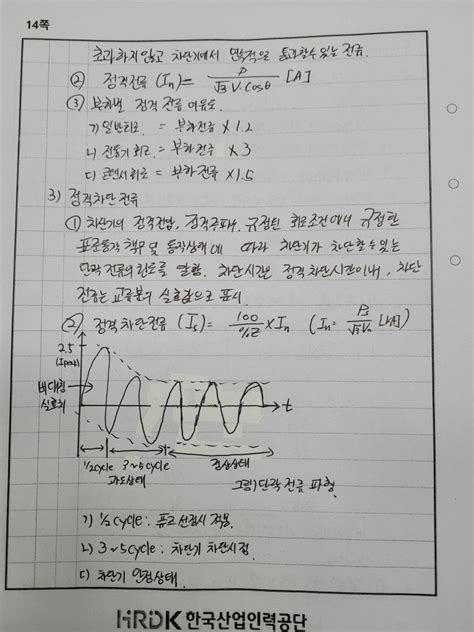 14쪽
초과하지 않고 차단기에서 연속적으로 통과할 수 있는 전류.
② 정격전류 (In) = P / √3 V·cosθ [A]
③ 부하별 정격 전류 적용도.
ㄱ) 일반회로 = 부하전류 × 1.2
ㄴ) 전동기 회로 = 부하전류 × 3
ㄷ) 콘덴서 회로 = 부하전류 × 1.5
3) 정격차단 전류
① 차단기의 정격전압, 정격주파수, 규정된 회로조건에서 규정한
표준동작 책무 및 동작상태에 따라 차단기가 차단할 수 있는
단락전류의 한도를 말함. 차단시간은 정격차단시간이내, 차단
전류는 교류분의 실효값으로 표시.
② 정격차단전류 (Is) = 100 / %Z × In (In = Ps / √3 V [kA])
2.5
(Ipeak)
비대칭
실효치
t
1/2cycle 3~5cycle 정상상태
과도상태
그림) 단락 전류 파형.
ㄱ) 1/2 cycle : 퓨즈 선정시 적용.
ㄴ) 3~5cycle : 차단기 차단시점.
ㄷ) 차단기 안정상태.
HRDK 한국산업인력공단